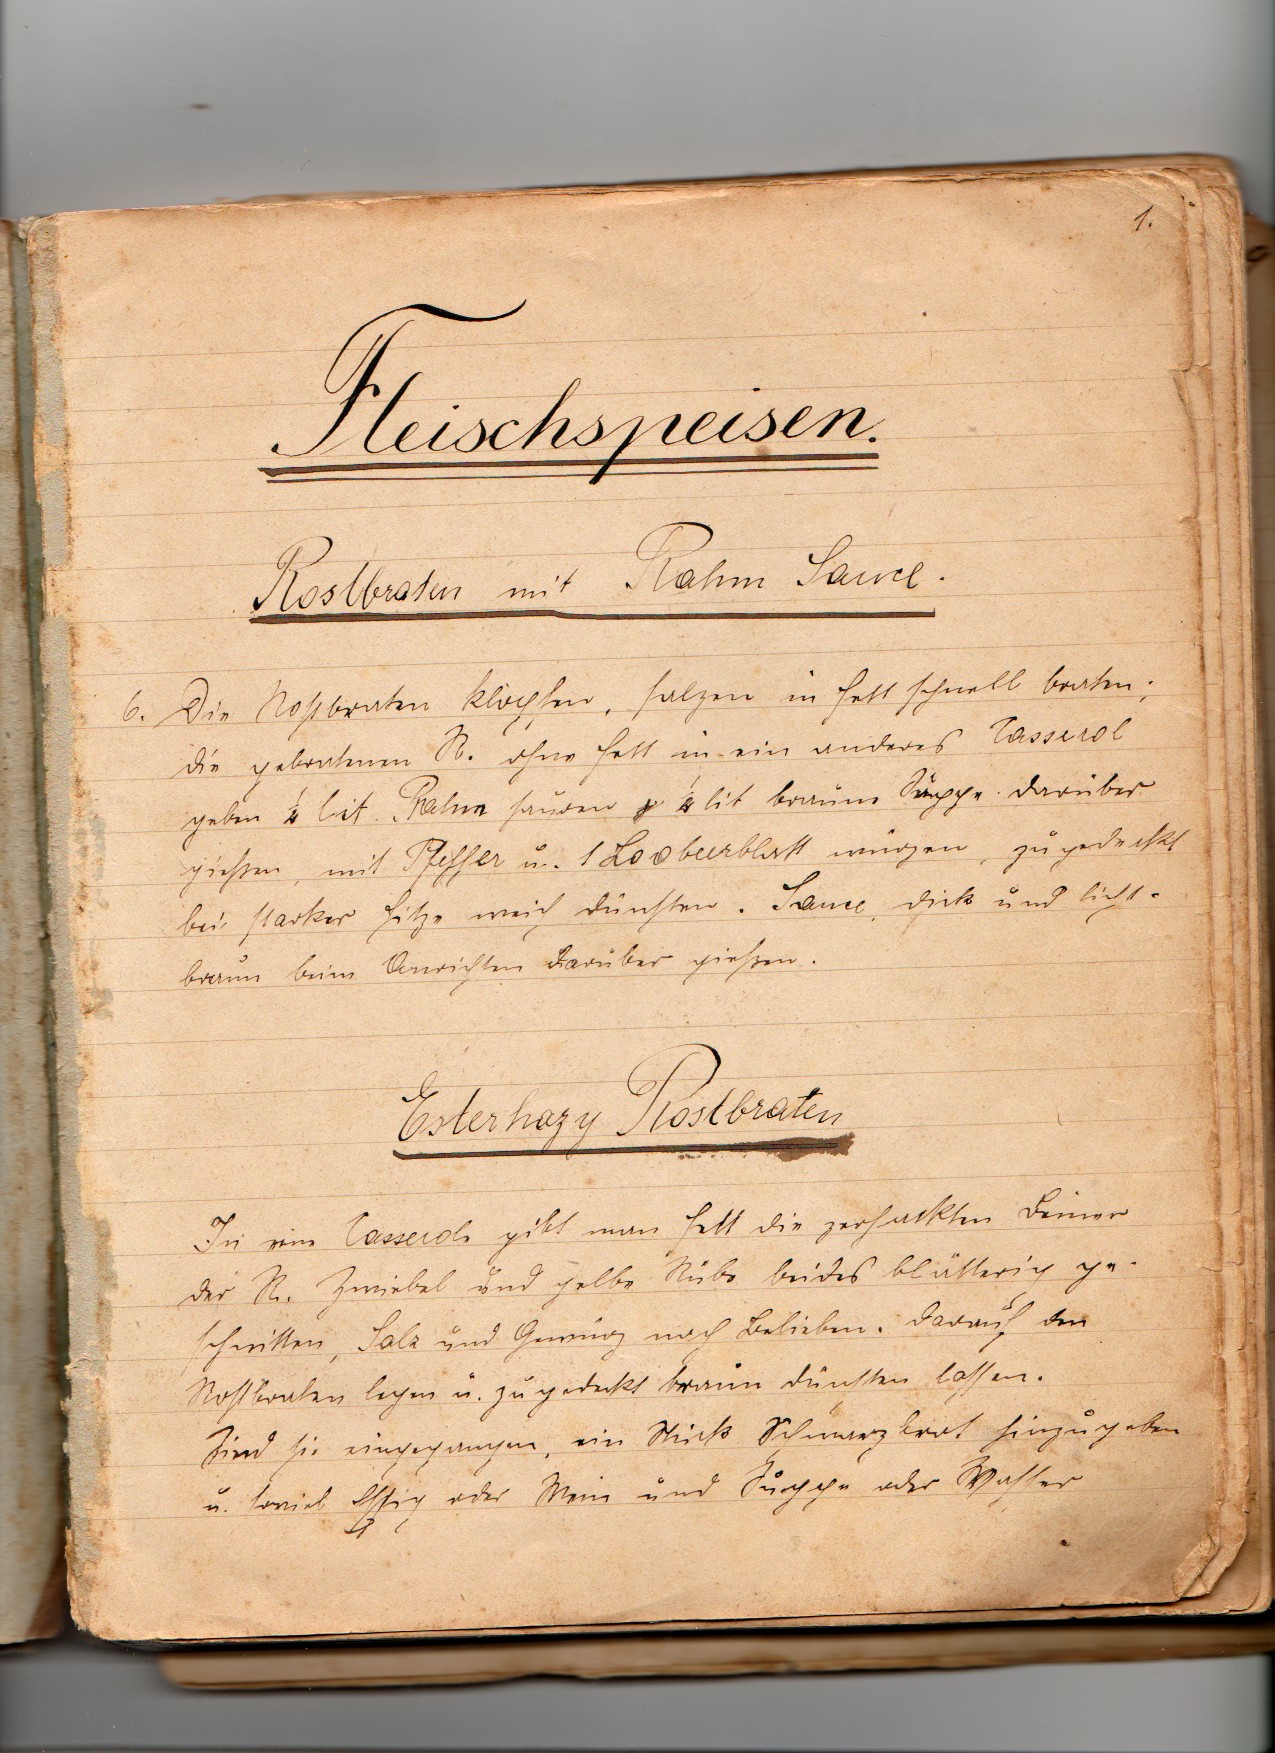 1.
Fleischspeisen.
Rostbraten mit Rahm Sauce.
6. Die Rostbraten klopfen, salzen in Fett schnell braten;
die gebratenen R. ohne Fett in ein anderes Casserol
geben ¼ Lit. Rahm sauren ¼ lit braune Suppe darüber
gießen, mit Pfeffer u. 1 Loobeerblatt würzen, zugedeckt
bei starker Hitze weich dünsten. Sauce, dick und licht-
braun beim Anrichten darüber gießen.
Esterhazy Rostbraten
In eine Casserole gibt man Fett die zerhackten Beiner
der R. Zwiebel und gelbe Rübe beides blätterig ge-
schnitten, Salz und Gewürz nach Belieben. Darauf den
Rostbraten legen u. zugedeckt braun dünsten lassen.
Sind sie eingegangen, ein Stück Schwarzbrot hinzugeben
u. soviel Essig oder Wein und Suppe oder Wasser